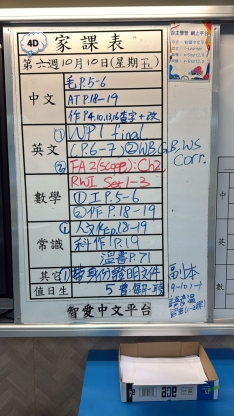 4D 家課表
第六週10月10日(星期五)
中文
毛P.5-6
AT P.18-19
作P.4,10,13,16査字+改
英文
① WP1 Final
(P.6-7) ② WB, GB, WS
Corr.
③ FA2 (Scope): Ch2
RWI Set 1-3
數學
① 工P.5-6
② 作P.18-19
常識
① 人文作P.18-19
科作1P.19
溫書P.71
其它
① 帶身份證明文件 副本
(9-10)-1
值日生
5
智愛中文平台
自主學習 網上平台
中
英
數